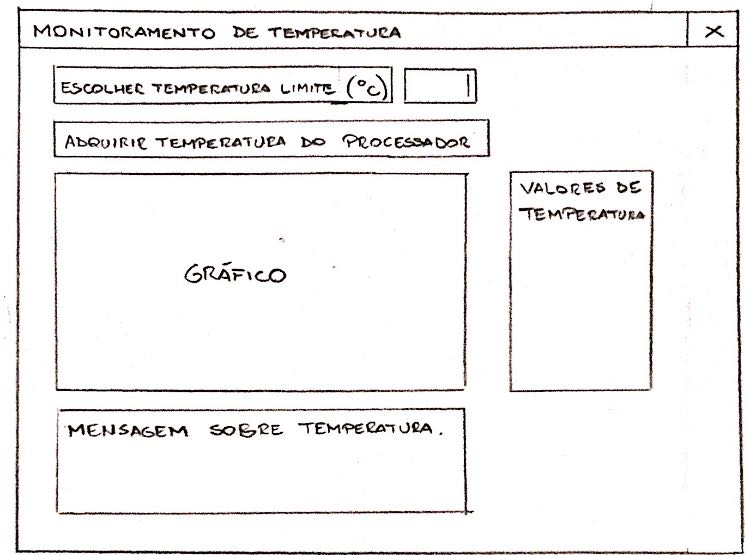 MONITORAMENTO DE TEMPERATURA X
ESCOLHER TEMPERATURA LIMITE (°C)
ADQUIRIR TEMPERATURA DO PROCESSADOR
VALORES DE
TEMPERATURA
GRÁFICO
MENSAGEM SOBRE TEMPERATURA.